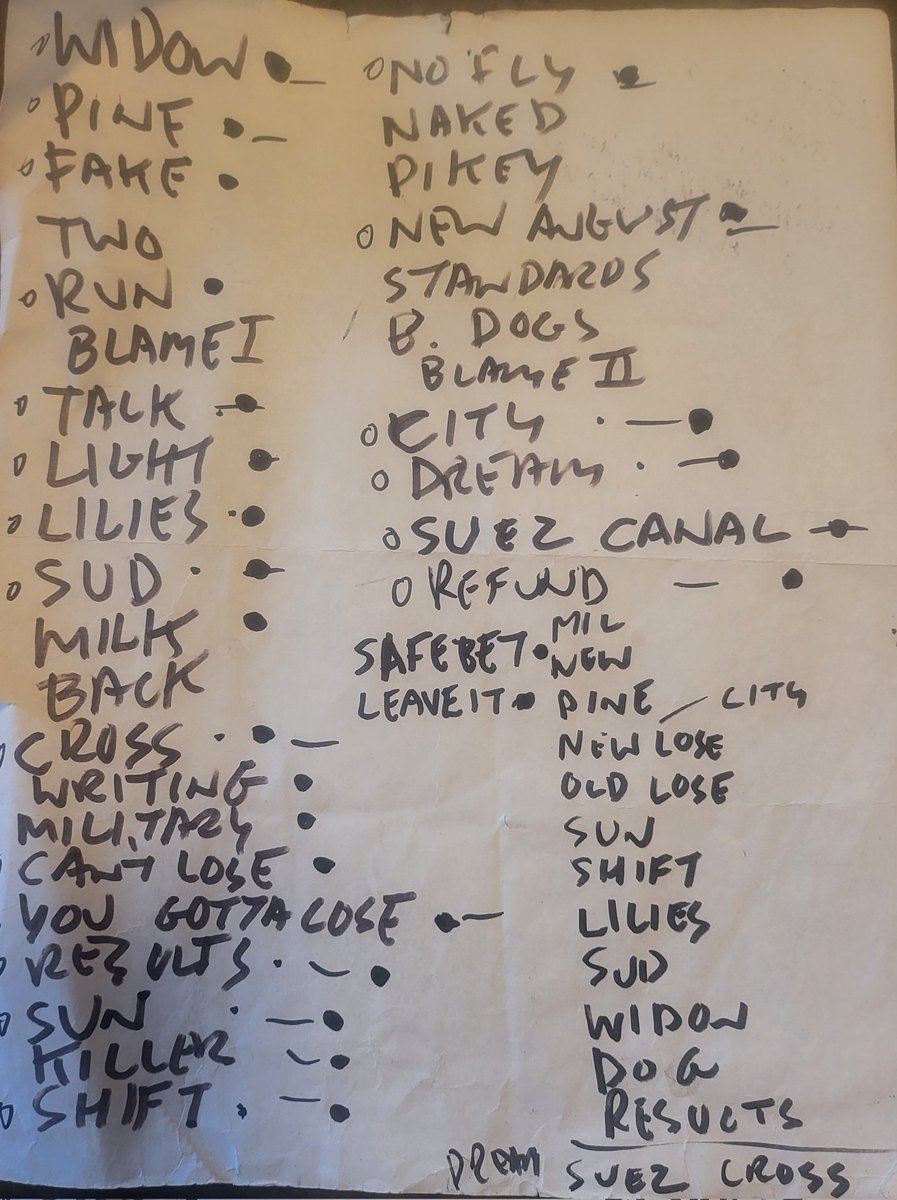 WIDOW
PINE
FAKE
TWO
RUN
BLAME I
TALK
LIGHT
LILIES
SUD
MILK
BACK
CROSS
WRITING
MILITARY
CANT LOSE
YOU GOTTA LOSE
RESULTS
SUN
KILLER
SHIFT
NO FLY
NAKED
PIKEY
NEW AUGUST
STANDARDS
B. DOGS
BLAME II
CITY
DREAM
SUEZ CANAL
REFUND
SAFE BET
LEAVE IT
MIL
NEW
PINE / CITY
NEW LOSE
OLD LOSE
SUN
SHIFT
LILIES
SUD
WIDOW
DOG
RESULTS
DREAM SUEZ CROSS